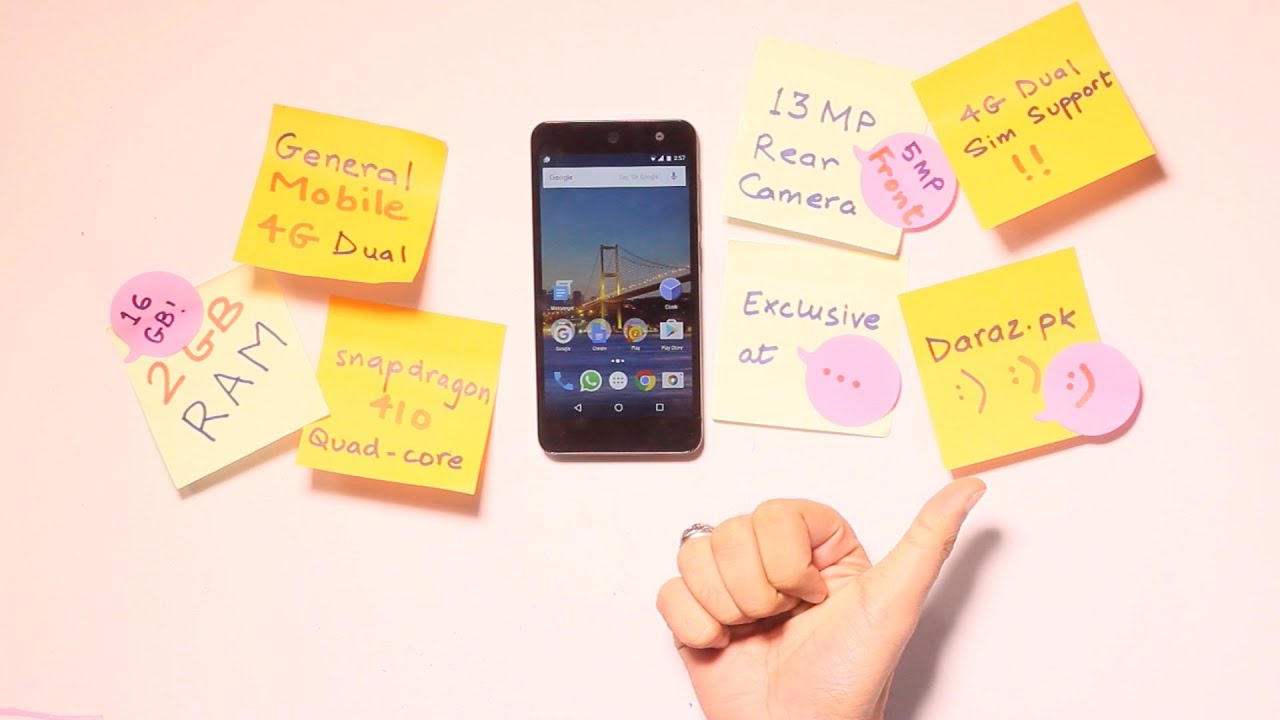 General
Mobile
4G Dual
16
GB!
2 GB
RAM
snapdragon
410
Quad-core
2:57
Google
Say "Ok Google"
Messenger
Clock
Google
Create
Play
Play Store
13 MP
Rear
Camera
5MP
Front
4G Dual
Sim Support
!!
Exclusive
at
...
Daraz.pk
:) :) :)